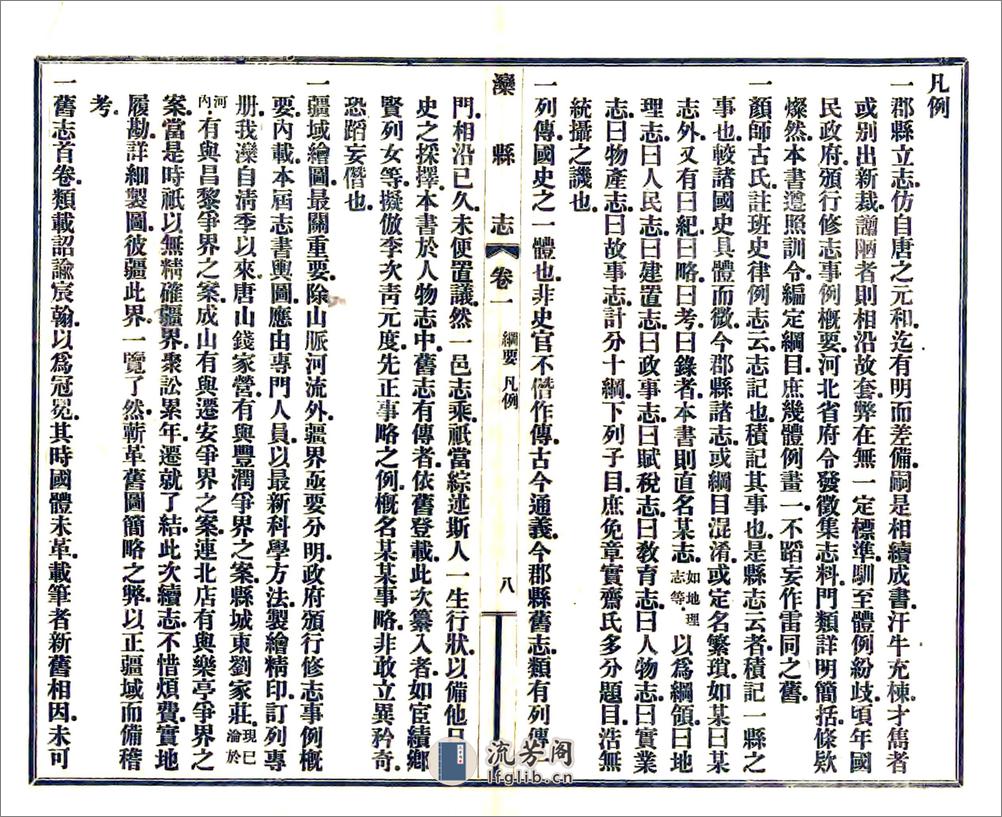 凡例
一郡縣立志仿自唐之元和迄有明而差備嗣是相續成書汗牛充棟才雋者
或別出新裁謭陋者則相沿故套弊在無一定標準馴至體例紛歧頃年國
民政府頒行修志事例概要河北省府令發徵集志料門類詳明簡括條款
燦然本書遵照訓令編定綱目庶幾體例畫一不蹈妄作雷同之舊
一顏師古氏註班史律例志云志記也積記其事也是縣志云者積記一縣之
事也較諸國史具體而微今郡縣諸志或綱目混淆或定名繁瑣如某曰某
志外又有曰紀曰略曰考曰錄者本書則直名某志如地理志等以爲綱領曰地
理志曰人民志曰建置志曰政事志曰賦稅志曰敎育志曰人物志曰實業
志曰物產志曰故事志計分十綱下列子目庶免章實齋氏多分題目浩無
統攝之譏也
一列傳國史之一體也非史官不僭作傳古今通義今郡縣舊志類有列傳
灤縣志 卷一 綱要 凡例 八
門相沿已久未便置議然一邑志乘祇當綜述斯人一生行狀以備他日
史之採擇本書於人物志中舊志有傳者依舊登載此次纂入者如宦績鄉
賢列女等擬倣李次靑元度先正事略之例概名某某事略非敢立異矜奇
恐蹈妄僭也
一疆域繪圖最關重要除山脈河流外疆界亟要分明政府頒行修志事例概
要內載本屆志書輿圖應由專門人員以最新科學方法製繪精印訂列專
册我灤自淸季以來唐山錢家營有與豐潤爭界之案縣城東劉家莊現已淪於
河內有與昌黎爭界之案成山有與遷安爭界之案連北店有與樂亭爭界之
案當是時祇以無精確疆界衆訟累年遷就了結此次續志不惜煩費實地
履勘詳細製圖彼疆此界一覽了然蘄革舊圖簡略之弊以正疆域而備稽
考
一舊志首卷類載詔諭宸翰以爲冠冕其時國體未革載筆者新舊相因未可
流芳阁
lfglib.cn